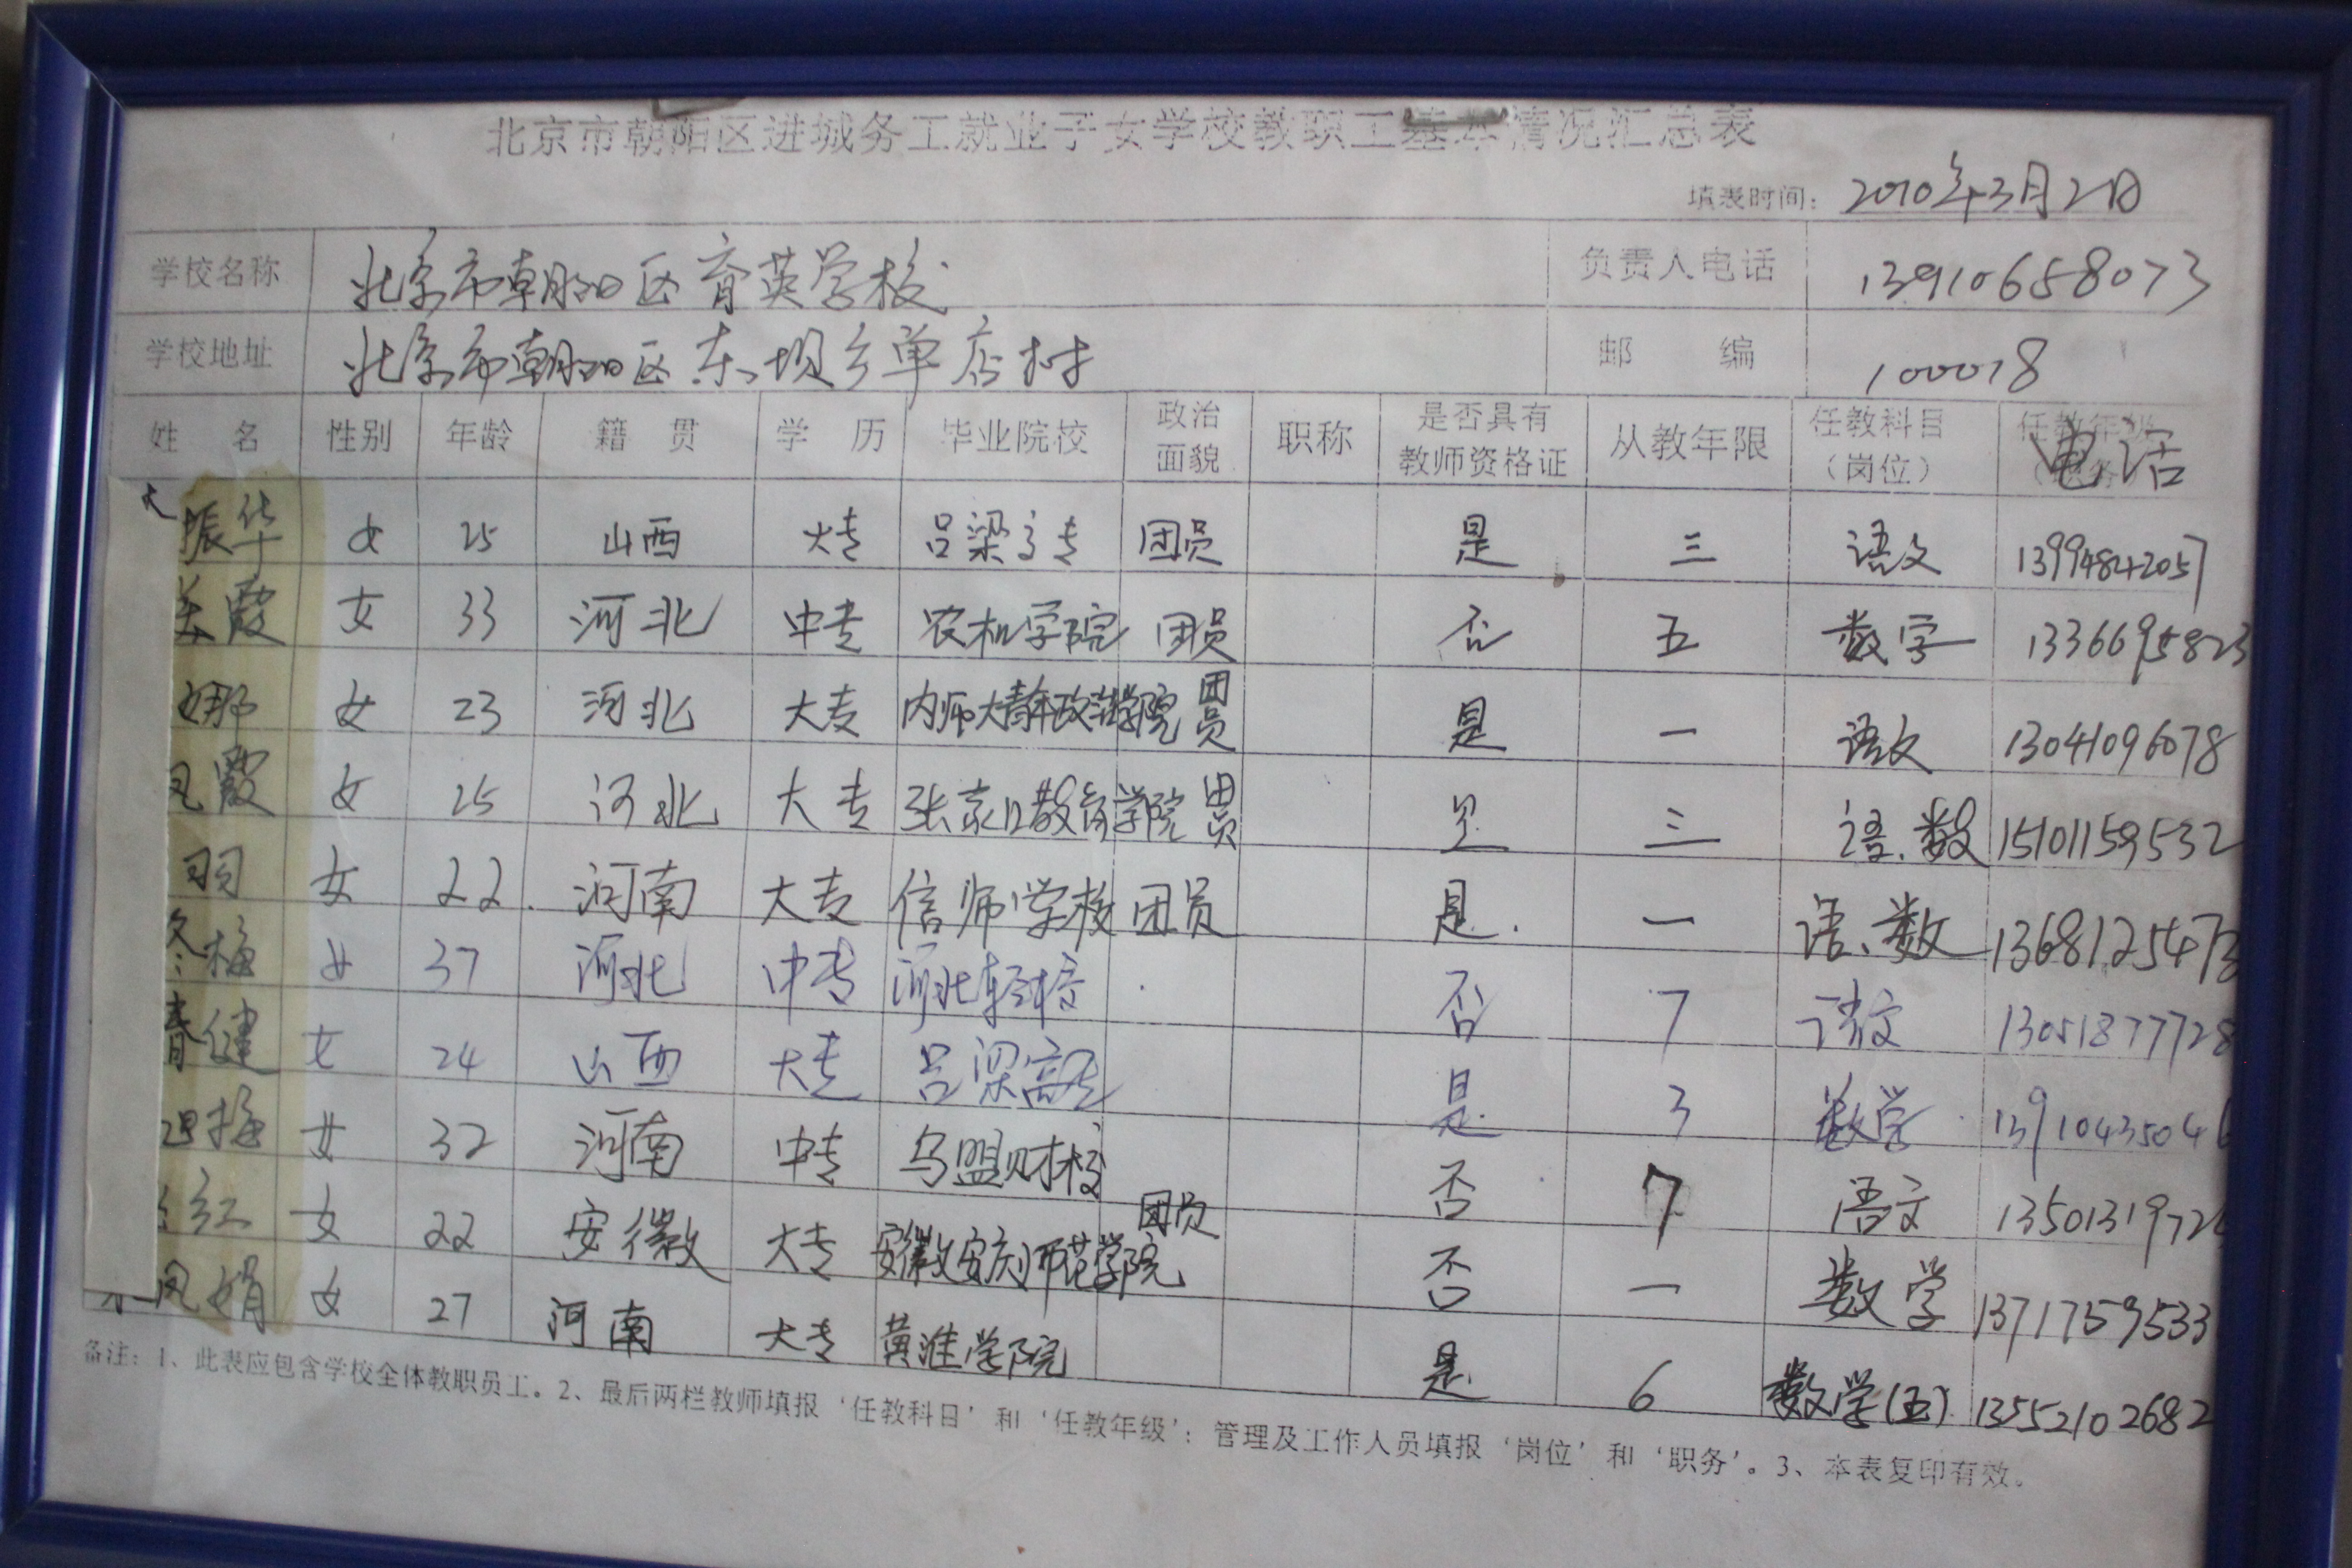 北京市朝阳区进城务工就业子女学校教职工基本情况汇总表
填表时间：2010年3月2日
学校名称 北京市朝阳区育英学校 负责人电话 13910658073
学校地址 北京市朝阳区东坝乡单店村 邮编 100018
姓名 性别 年龄 籍贯 学历 毕业院校 政治面貌 职称 是否具有教师资格证 从教年限 任教科目（岗位） 电话
振华 女 25 山西 大专 吕梁高专 团员 是 三 语文 13994842057
美霞 女 33 河北 中专 农机学院 团员 否 五 数字 1336695823
娜 女 23 河北 大专 内师大青年政治学院 团员 是 一 语文 13041096078
凤霞 女 25 河北 大专 张家口教育学院 团员 是 三 语、数 15101159532
羽 女 22 河南 大专 信师学校 团员 是 一 语、数 1368125473
冬梅 女 37 河北 中专 河北 否 7 语文 13051877728
春健 女 24 山西 大专 吕梁高专 是 3 数学 13910435046
迎梅 女 32 河南 中专 乌盟财校 否 7 语文 1350131972
红 女 22 安徽 大专 安徽安庆师范学院 团员 否 一 数学 1371759533
凤娟 女 27 河南 大专 黄淮学院 是 6 数学(五) 13552102682
备注：1、此表应包含学校全体教职员工。2、最后两栏教师填报‘任教科目’和‘任教年级’；管理及工作人员填报‘岗位’和‘职务’。3、本表复印有效。